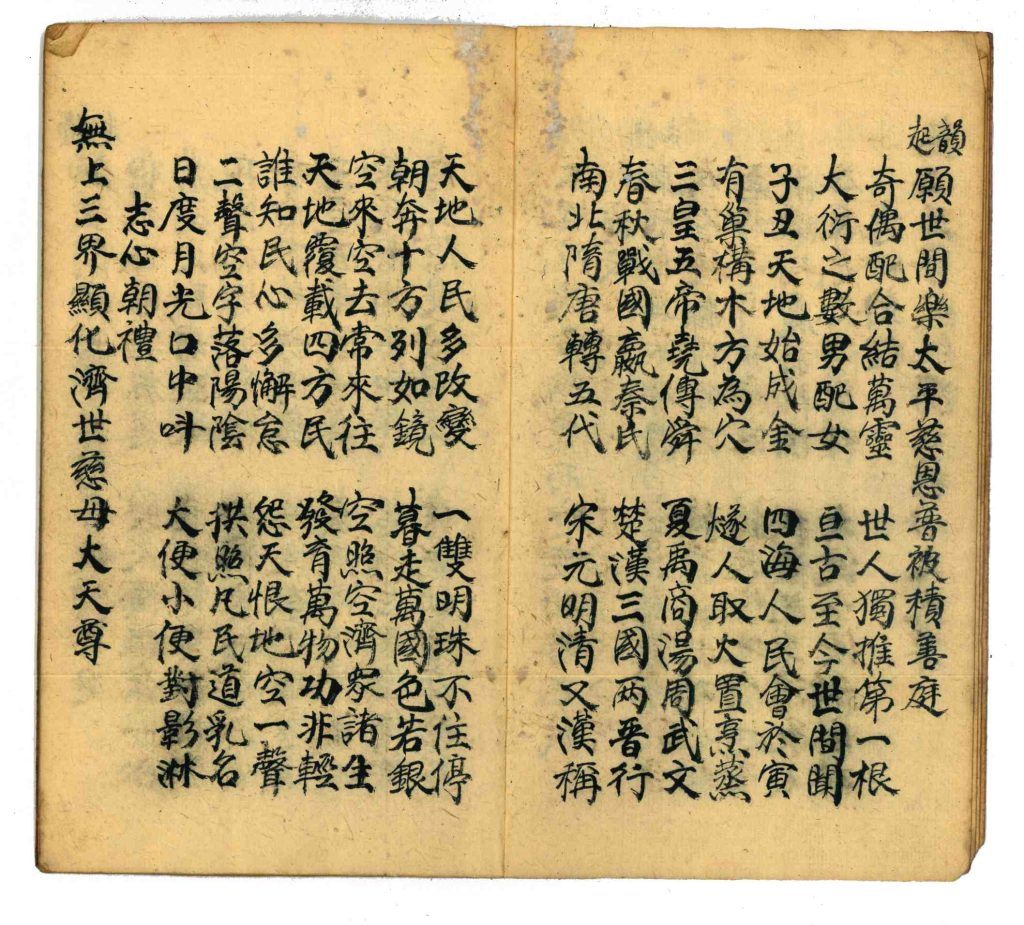 韻起
願世間樂太平慈恩普被積善庭
奇偶配合結萬靈 世人獨推第一根
大衍之數男配女 亘古至今世間聞
子丑天地始成金 四海人民會於寅
有巢構木方為穴 燧人取火置烹蒸
三皇五帝堯傳舜 夏禹商湯周武文
春秋戰國嬴秦氏 楚漢三國两晋行
南北隋唐轉五代 宋元明清又漢稱
天地人民多改變 一雙明珠不住停
朝奔十方列如鏡 暮走萬國色若銀
空來空去常來往 空照空濟眾諸生
天地覆載四方民 發育萬物功非輕
誰知民心多懈怠 怨天恨地空一聲
二聲空字落陽陰 拱照凡民道乳名
日度月光口中呌 大便小便對影淋
志心朝禮
無上三界顯化濟世慈母大天尊